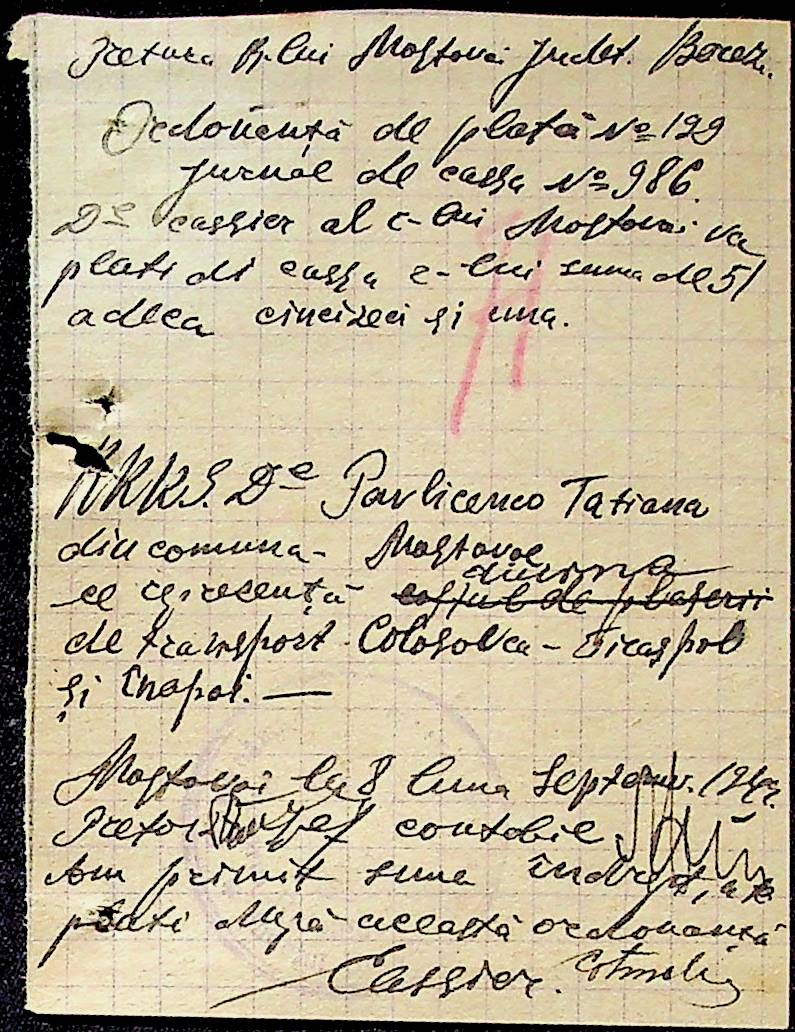 Pretura R-lui Mostovoi Judet. Berez.
Ordonanță de plată № 129
jurnal de cassa № 986.
Dl cassier al r-lui Mostovoi va
plati di cassa r-lui suma de 51
adeca cincizeci și una.
RKKS. De Pavlicenco Tatiana
din comuna - Mostovoe
diurna
ce represență costul de plaserii
de transport Colosovca - Tiraspol
și înapoi. —
Mostovoi la 8 luna Septemv. 194
Pretor Șef contabil
Am primit suma
plati după această ordonanță
Cassier.